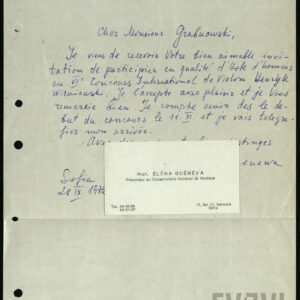 Cher Monsieur Grabnowski,
Je viens de recevoir Votre bien aimable invi-
tation de participer en qualité d'Hôte d'honneur
au VIe Concours International de Violon Henryk
Wieniawski. Je l'accepte avec plaisir et je Vous
remercie bien. Je compte venir dès le dé-
but du concours le 11.XI et je vais telegra-
fier mon arrivée.
Avec
Prof. ÉLÉNA GUÉNÉVA
Prorecteur du Conservatoire National de Musique
Sofia